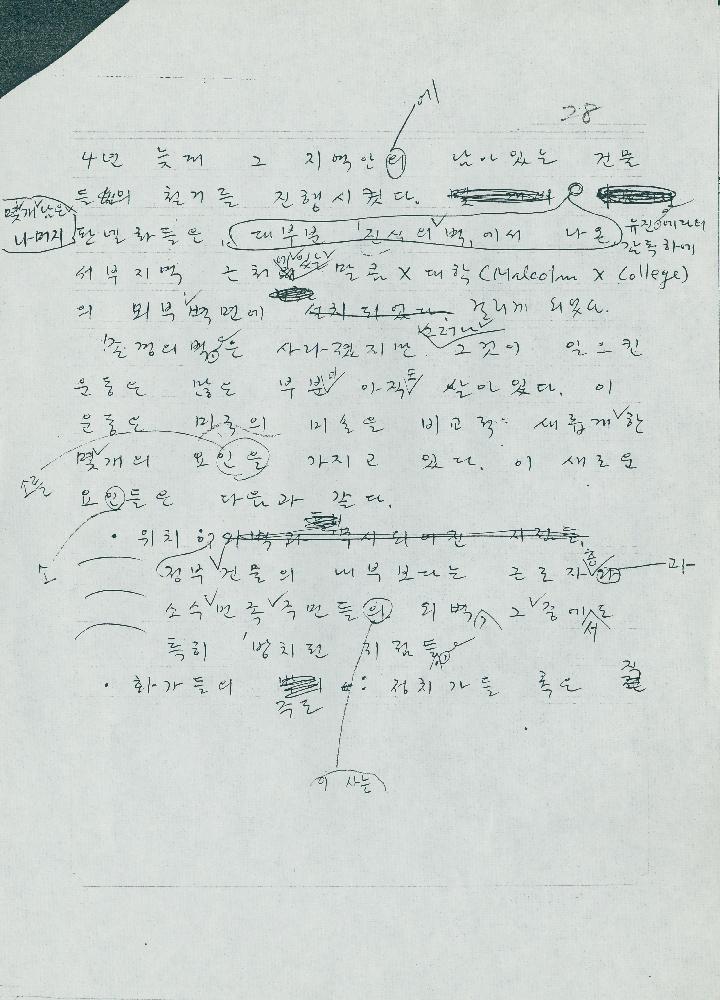 에
28
4년 늦게 그 지역안의 남아있는 건물
들의 철거를 진행시켰다.
몇개 남은
나머지 판넬화들은, 대부분 '진식의 벽'에서 나온 유진 에다의
감독하에
서부지역 근처에 있는 말콤 X 대학 (Malcolm X College)
의 외부 벽면에 설치되었다. 걸리게 되었다.
'존경의 벽'은 사라졌지만 그러나 그것이 일으킨
운동은 많은 부분이 아직도 살아있다. 이
운동은 미국의 미술을 비교적 새롭게 한
몇개의 요인을 가지고 있다. 이 새로운
소를
요인들은 다음과 같다.
• 위치:
정부 건물의 내부보다는 근로자층과
소
소수민족 주민들의 외벽, 그 중에서도
특히 '방치된 지점들'
• 화가들의 주로 : 정치가들 혹은
이 사는